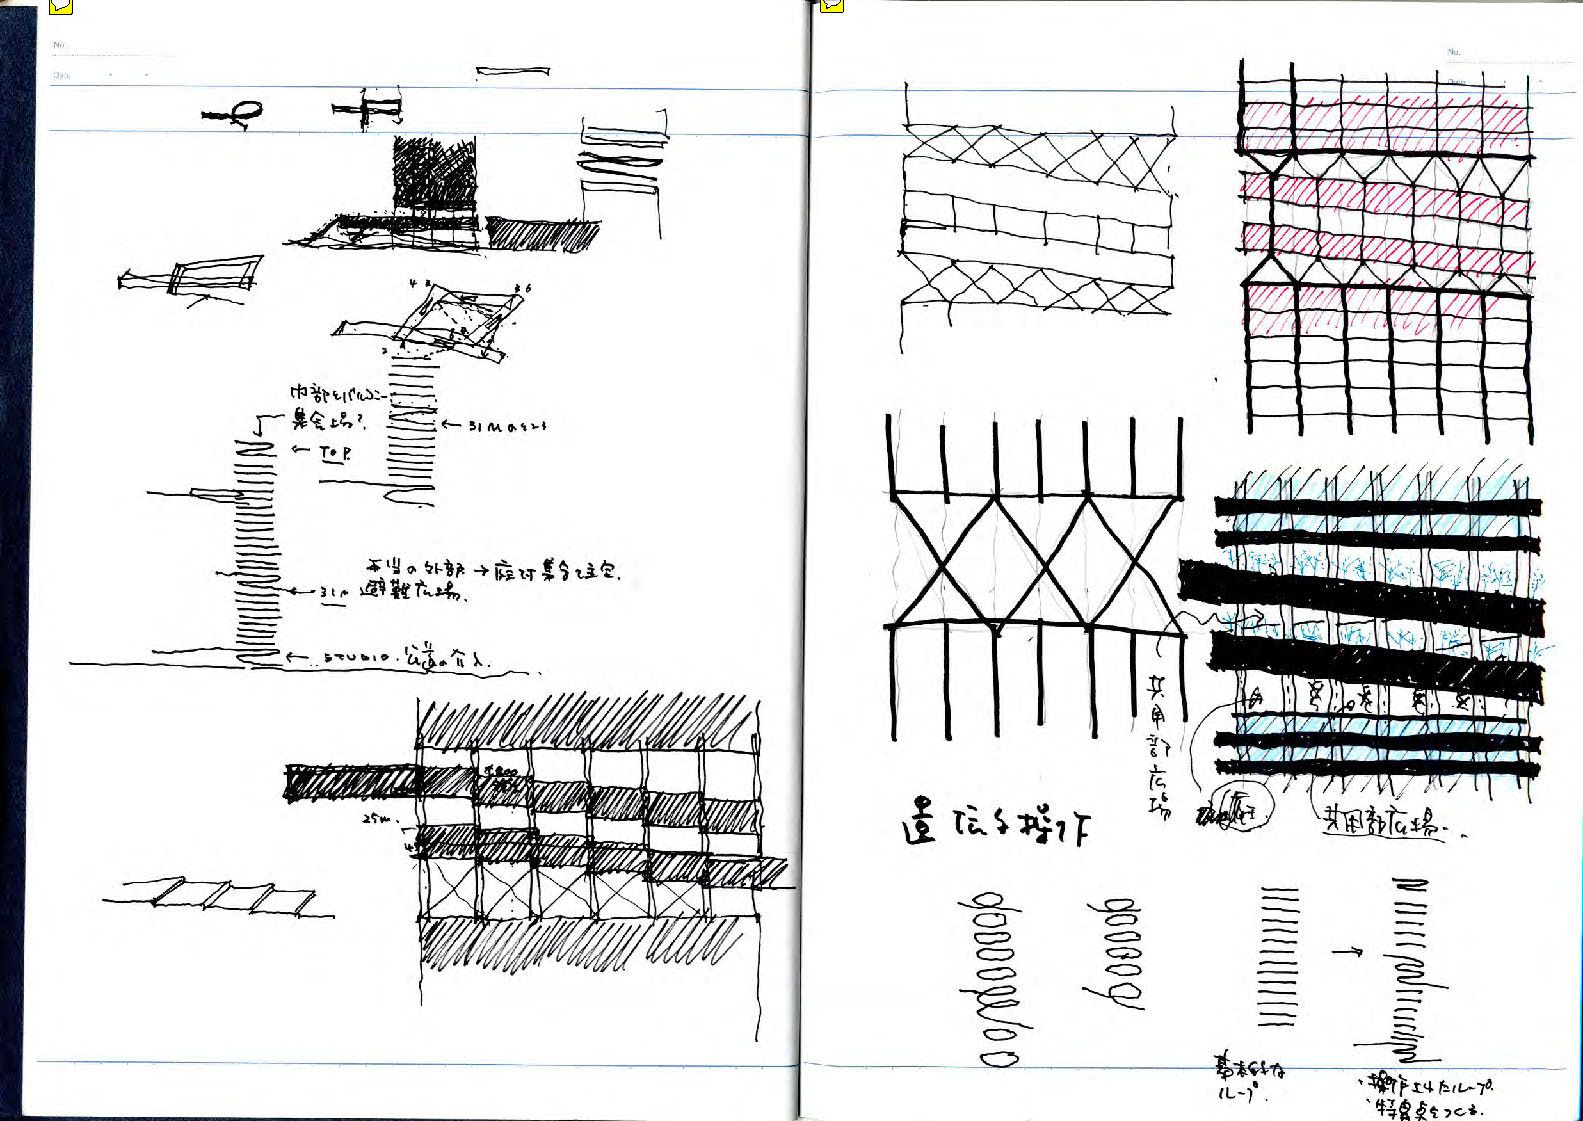 No.
Date
4
6
2
内部とバルコニー
集会場?
← 31mのセット
← TOP
本当の外部 → 庭で集合を主定.
← 31m 避難広場.
← STUDIO.
25m.
No.
Date
共用部広場
遺伝子操作
庭
共用部広場...
基本的な
ループ.
・操作されたループ.
・特異点をつくる.